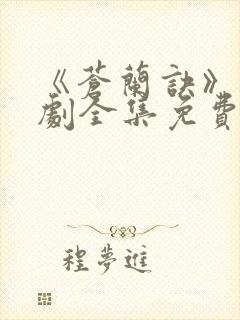 《蒼蘭訣》
劇全集免費
程夢進